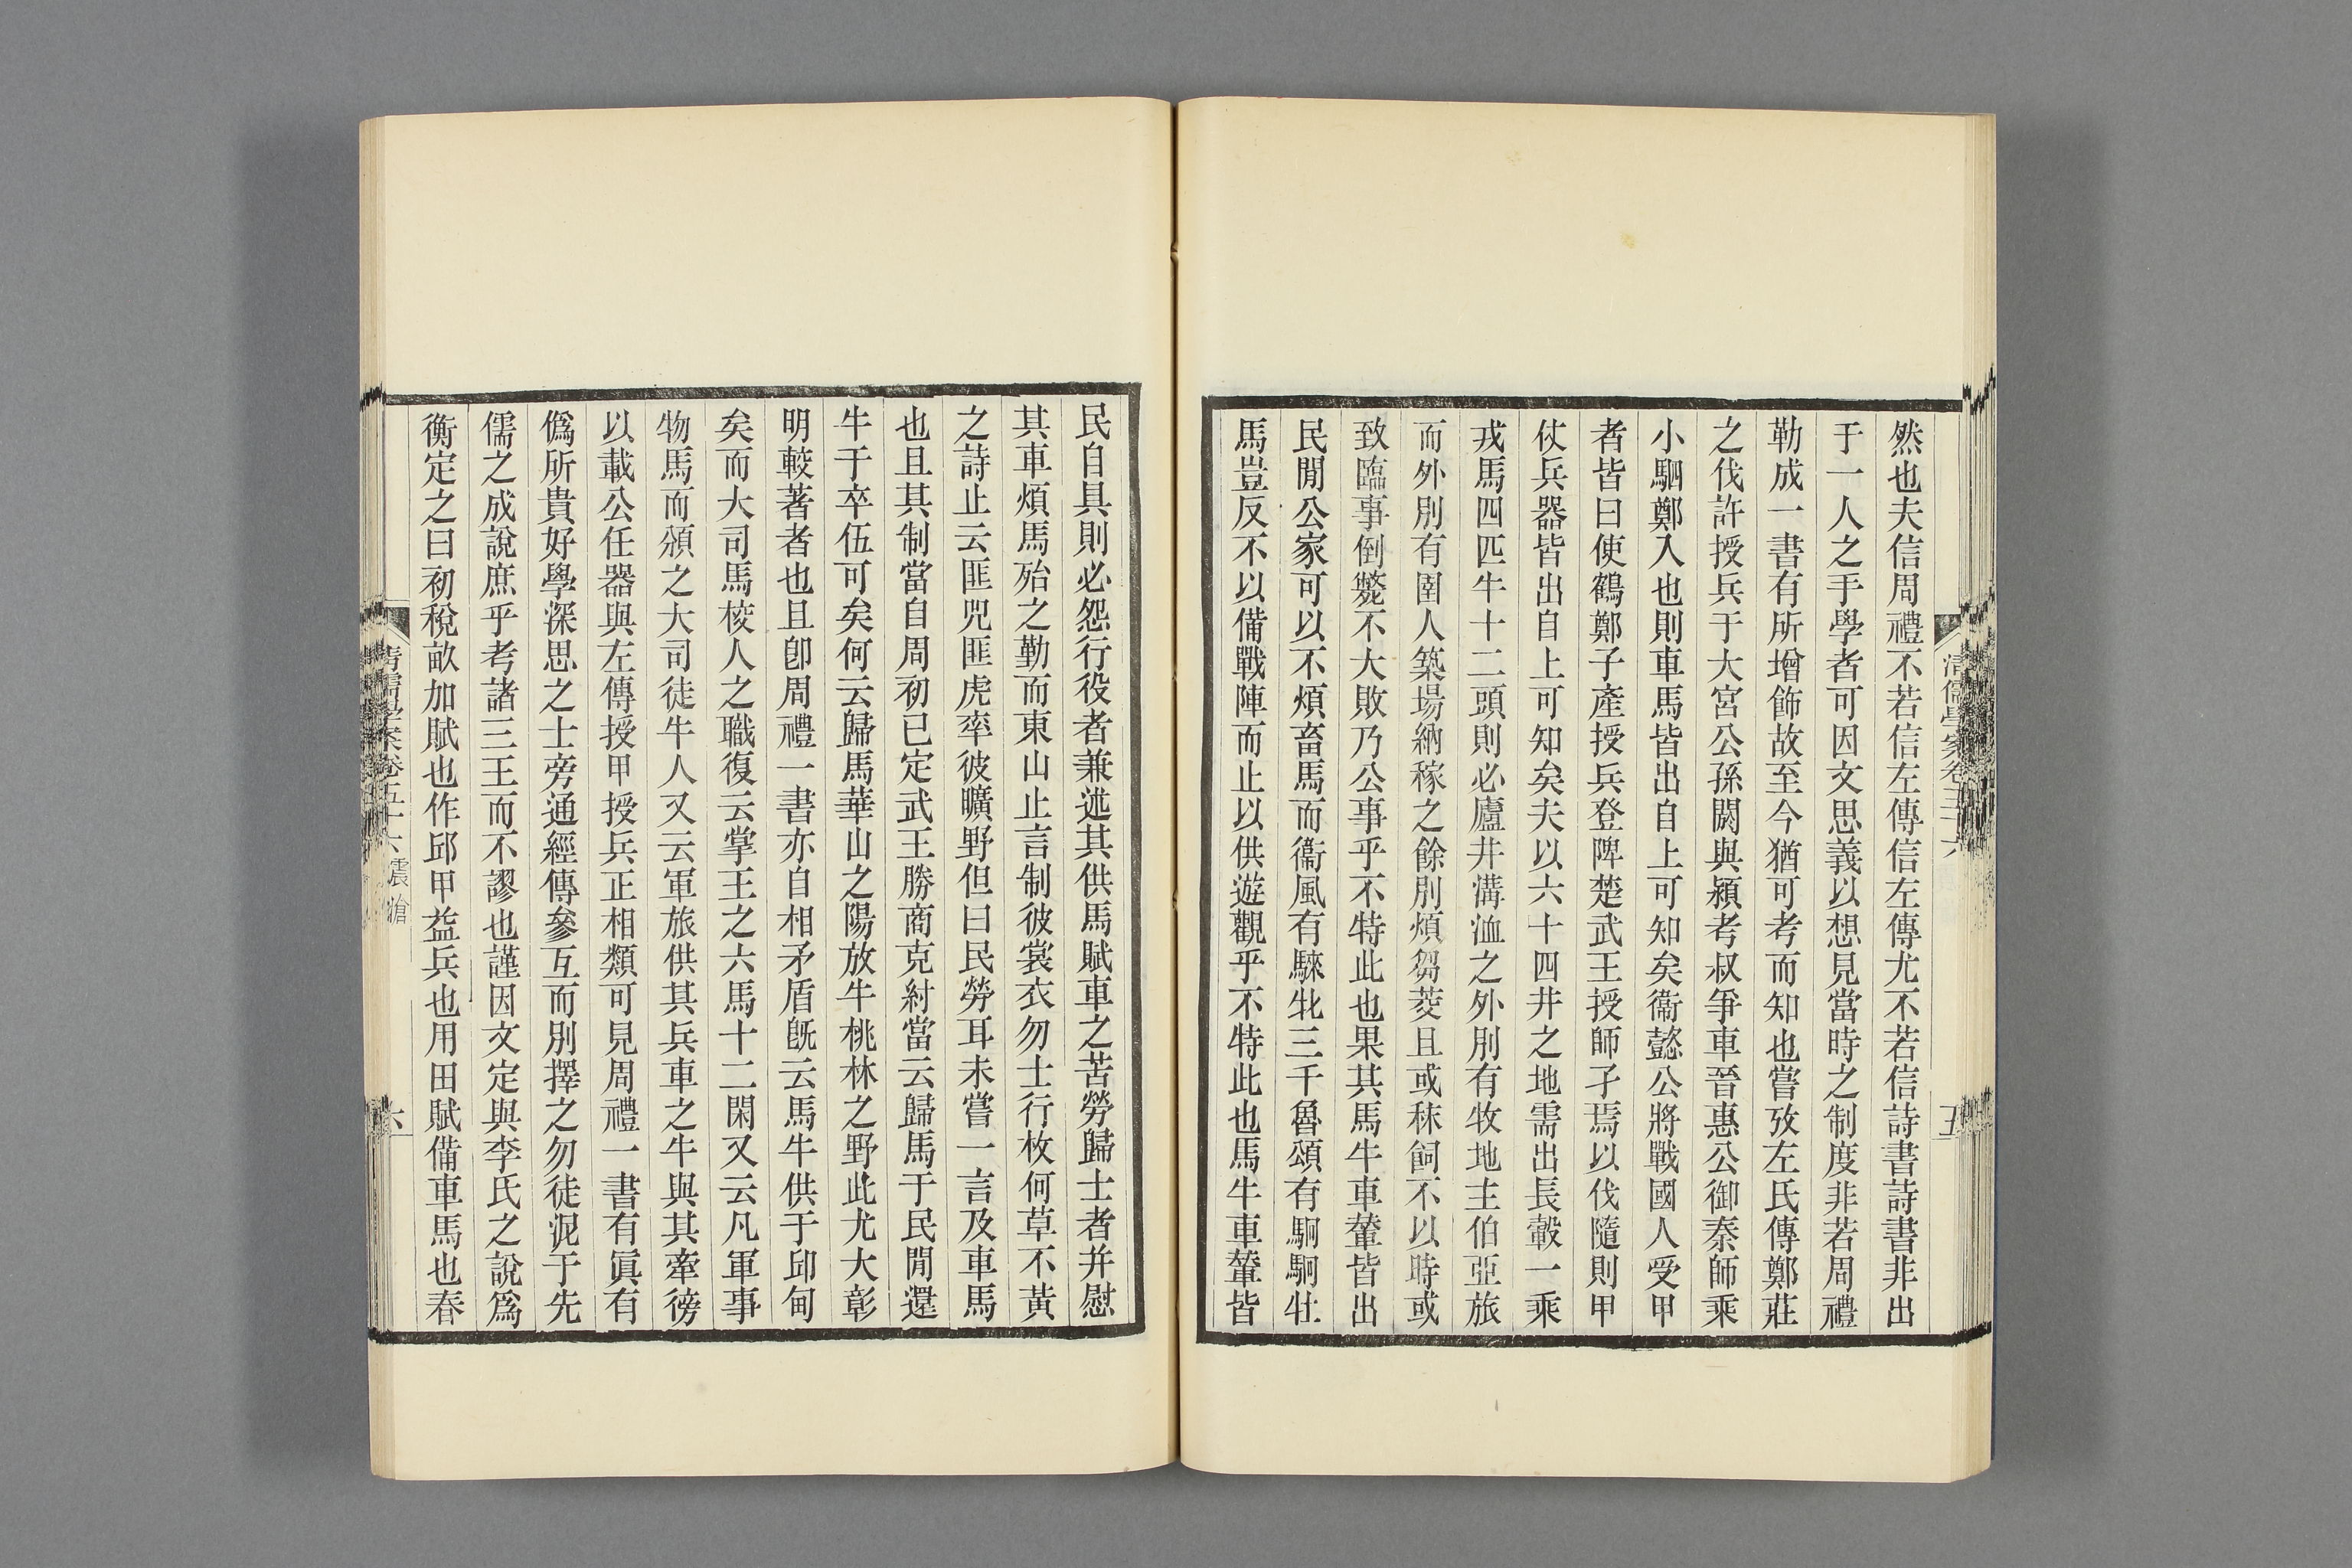 然也夫信周禮不若信左傳信左傳尤不若信詩書詩書非出
于一人之手學者可因文思義以想見當時之制度非若周禮
勒成一書有所增飾故至今猶可考而知也嘗攷左氏傳鄭莊
之伐許授兵于大宮公孫閼與潁考叔爭車晉惠公御秦師乘
小駟鄭入也則車馬皆出自上可知矣衞懿公將戰國人受甲
者皆曰使鶴鄭子產授兵登陴楚武王授師孑焉以伐隨則甲
仗兵器皆出自上可知矣夫以六十四井之地需出長轂一乘
戎馬四匹牛十二頭則必廬井溝洫之外別有牧地主伯亞旅
而外別有圉人築場納稼之餘別煩芻茭且或秣飼不以時或
致臨事倒斃不大敗乃公事乎不特此也果其馬牛車輦皆出
民閒公家可以不煩畜馬而衞風有騋牝三千魯頌有駉駉牡
馬豈反不以備戰陣而止以供遊觀乎不特此也馬牛車輦皆
清儒學案卷五十六
五
民自具則必怨行役者兼述其供馬賦車之苦勞歸士者并慰
其車煩馬殆之勤而東山止言制彼裳衣勿士行枚何草不黃
之詩止云匪兕匪虎率彼曠野但曰民勞耳未嘗一言及車馬
也且其制當自周初已定武王勝商克紂當云歸馬于民閒還
牛于卒伍可矣何云歸馬華山之陽放牛桃林之野此尤大彰
明較著者也且卽周禮一書亦自相矛盾旣云馬牛供于邱甸
矣而大司馬校人之職復云掌王之六馬十二閑又云凡軍事
物馬而頒之大司徒牛人又云軍旅供其兵車之牛與其牽徬
以載公任器與左傳授甲授兵正相類可見周禮一書有眞有
僞所貴好學深思之士旁通經傳參互而別擇之勿徒泥于先
儒之成說庶乎考諸三王而不謬也謹因文定與李氏之說爲
衡定之曰初稅畝加賦也作邱甲益兵也用田賦備車馬也春
清儒學案卷五十六 震滄
六